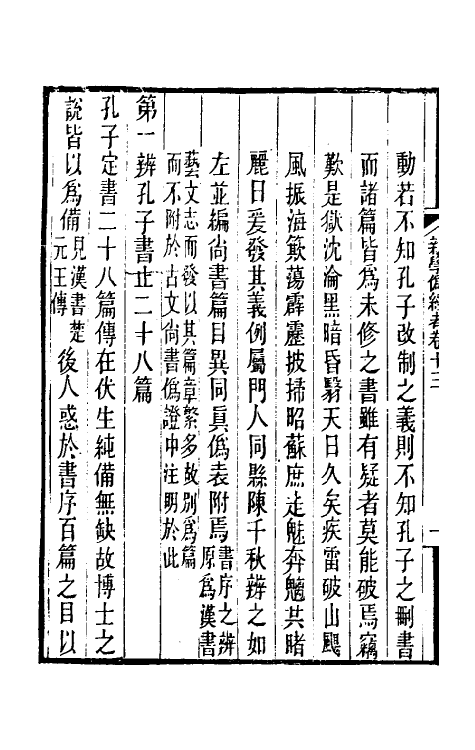 新學偽經考卷十三
一
動若不知孔子改制之義則不知孔子之刪書
而諸篇皆爲未修之書雖有疑者莫能破焉竊
歎是獄沈淪黑暗昏翳天日久矣疾雷破山飈
風振海簸蕩霹靂披掃昭蘇庶走魅奔魑共睹
麗日爰發其義例屬門人同縣陳千秋辨之如
左並編尚書篇目異同眞僞表附焉書序之辨原爲漢書
藝文志而發以其篇章繁多故別爲篇
而不附於古文尚書僞證中注明於此
第一辨孔子書止二十八篇
孔子定書二十八篇傳在伏生純備無缺故博士之
說皆以爲備見漢書楚元王傳後人惑於書序百篇之目以